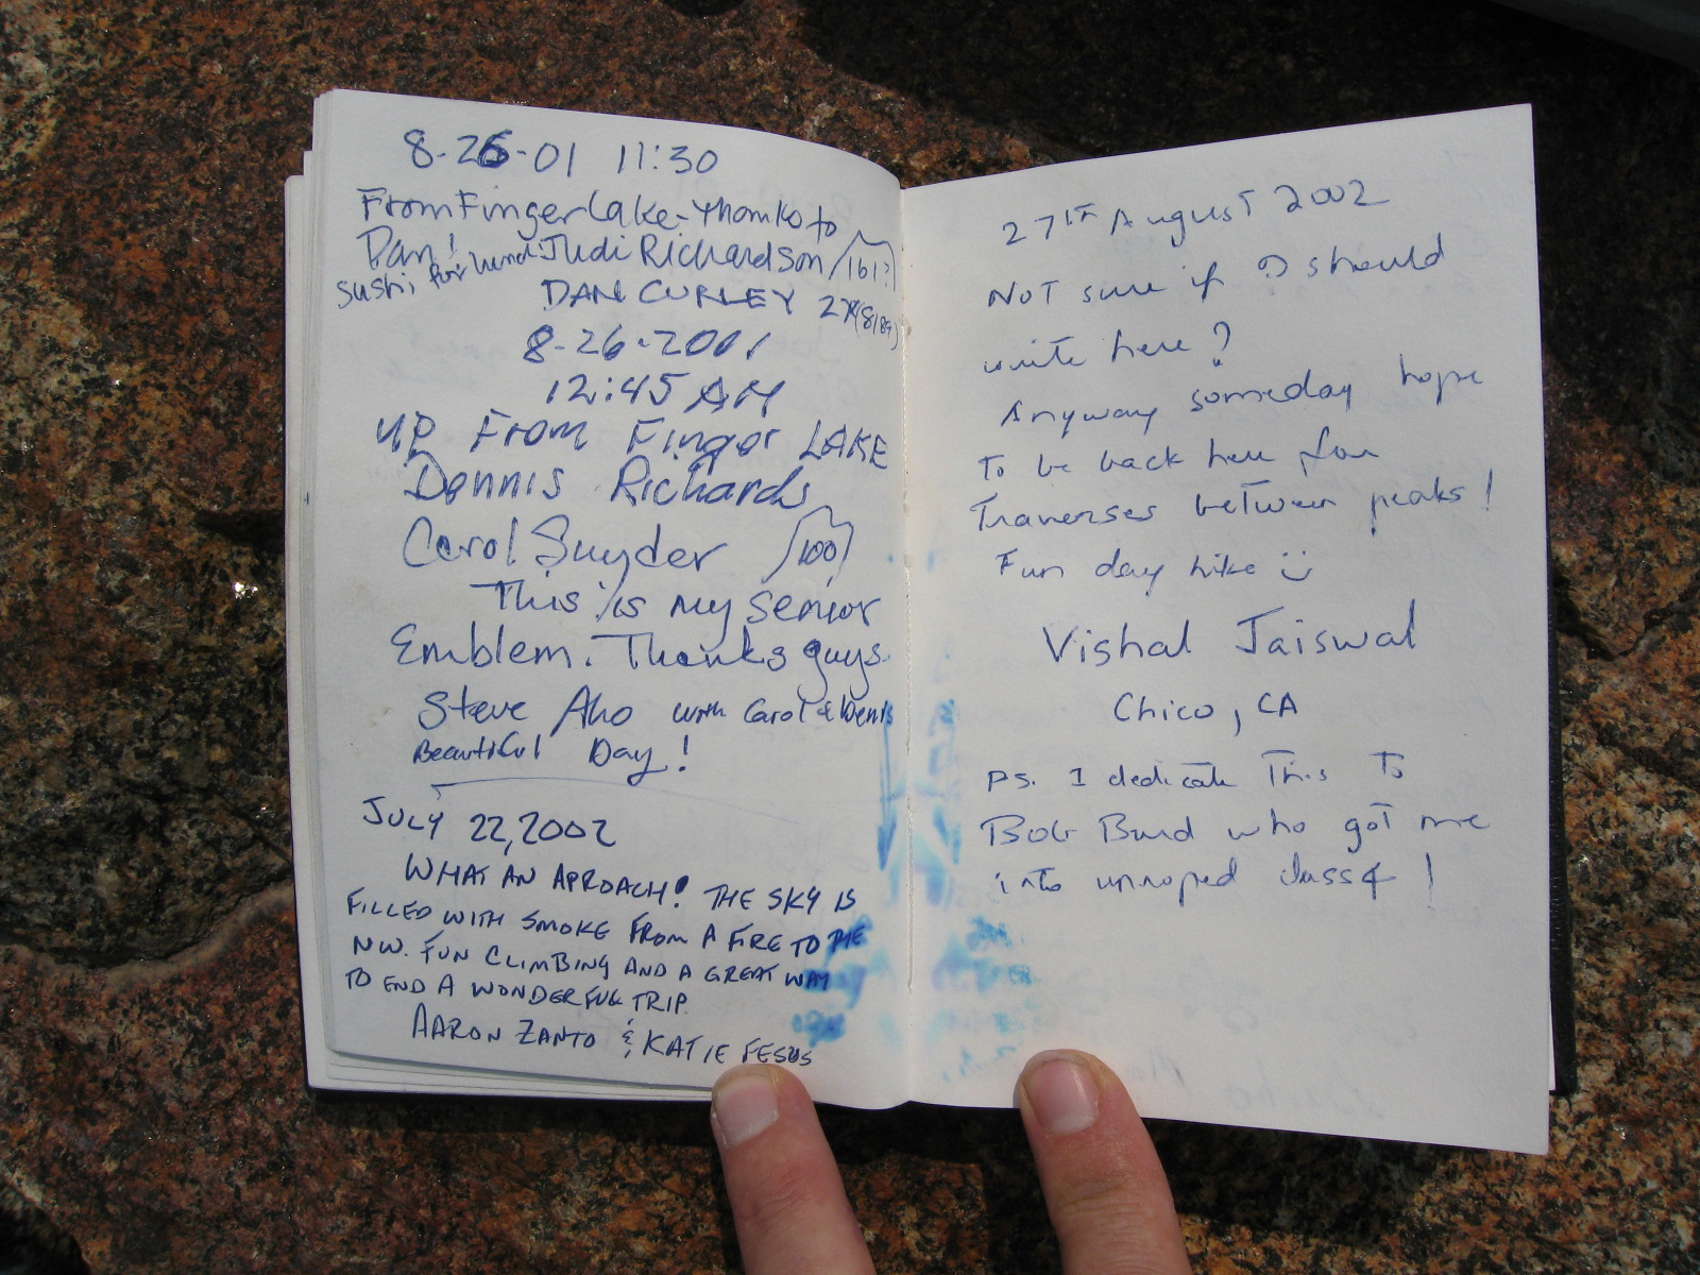 8-26-01 11:30
From Finger Lake - Thanks to
Dan! Judi Richardson /161?
sushi for lunch!
DAN CURLEY 2X (8/89)
8-26-2001
12:45 AM
UP From Finger LAKE
Dennis Richards
Carol Snyder /100
This is my Senior
Emblem. Thanks guys.
Steve Aho with Carol & Denis
Beautiful Day!
JULY 22, 2002
WHAT AN APROACH! THE SKY IS
FILLED WITH SMOKE FROM A FIRE TO THE
NW. FUN CLIMBING AND A GREAT WAY
TO END A WONDERFUL TRIP.
AARON ZANTO & KATIE FESUS
27TH August 2002
NOT sure if I should
write here?
Anyway someday hope
To be back here for
Traverses between peaks!
Fun day hike
Vishal Jaiswal
Chico, CA
PS. I dedicate This To
Bob Burd who got me
into unroped class 4!